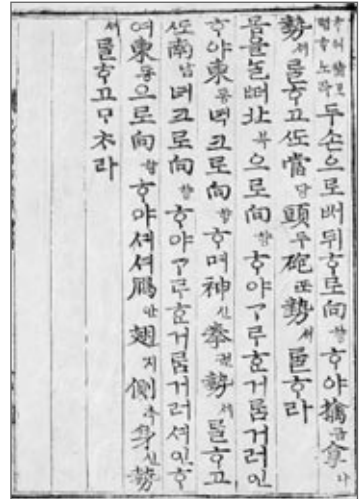 두손으로ᄡᅥ뒤ᄒᆞ로向향ᄒᆞ야擒금拿나
勢셰ᄅᆞᆯᄒᆞ고ᄯᅩ當당頭두砲포勢셰ᄅᆞᆯᄒᆞ라
몸을ᄂᆞᆯᄠᅥ北북으로向향ᄒᆞ야ᄀᆞᄅᆞᄒᆞᆫ거름거러인
ᄒᆞ야東동녁크로向향ᄒᆞ며神신拳권勢셰ᄅᆞᆯᄒᆞ고
ᄯᅩ南남녁크로向향ᄒᆞ야ᄀᆞᄅᆞᄒᆞᆫ거름거러셔인ᄒᆞ
여東동으로向향ᄒᆞ야셔셔鴈안翅지側측身신勢
셰ᄅᆞᆯᄒᆞ고ᄆᆞᄎᆞ라